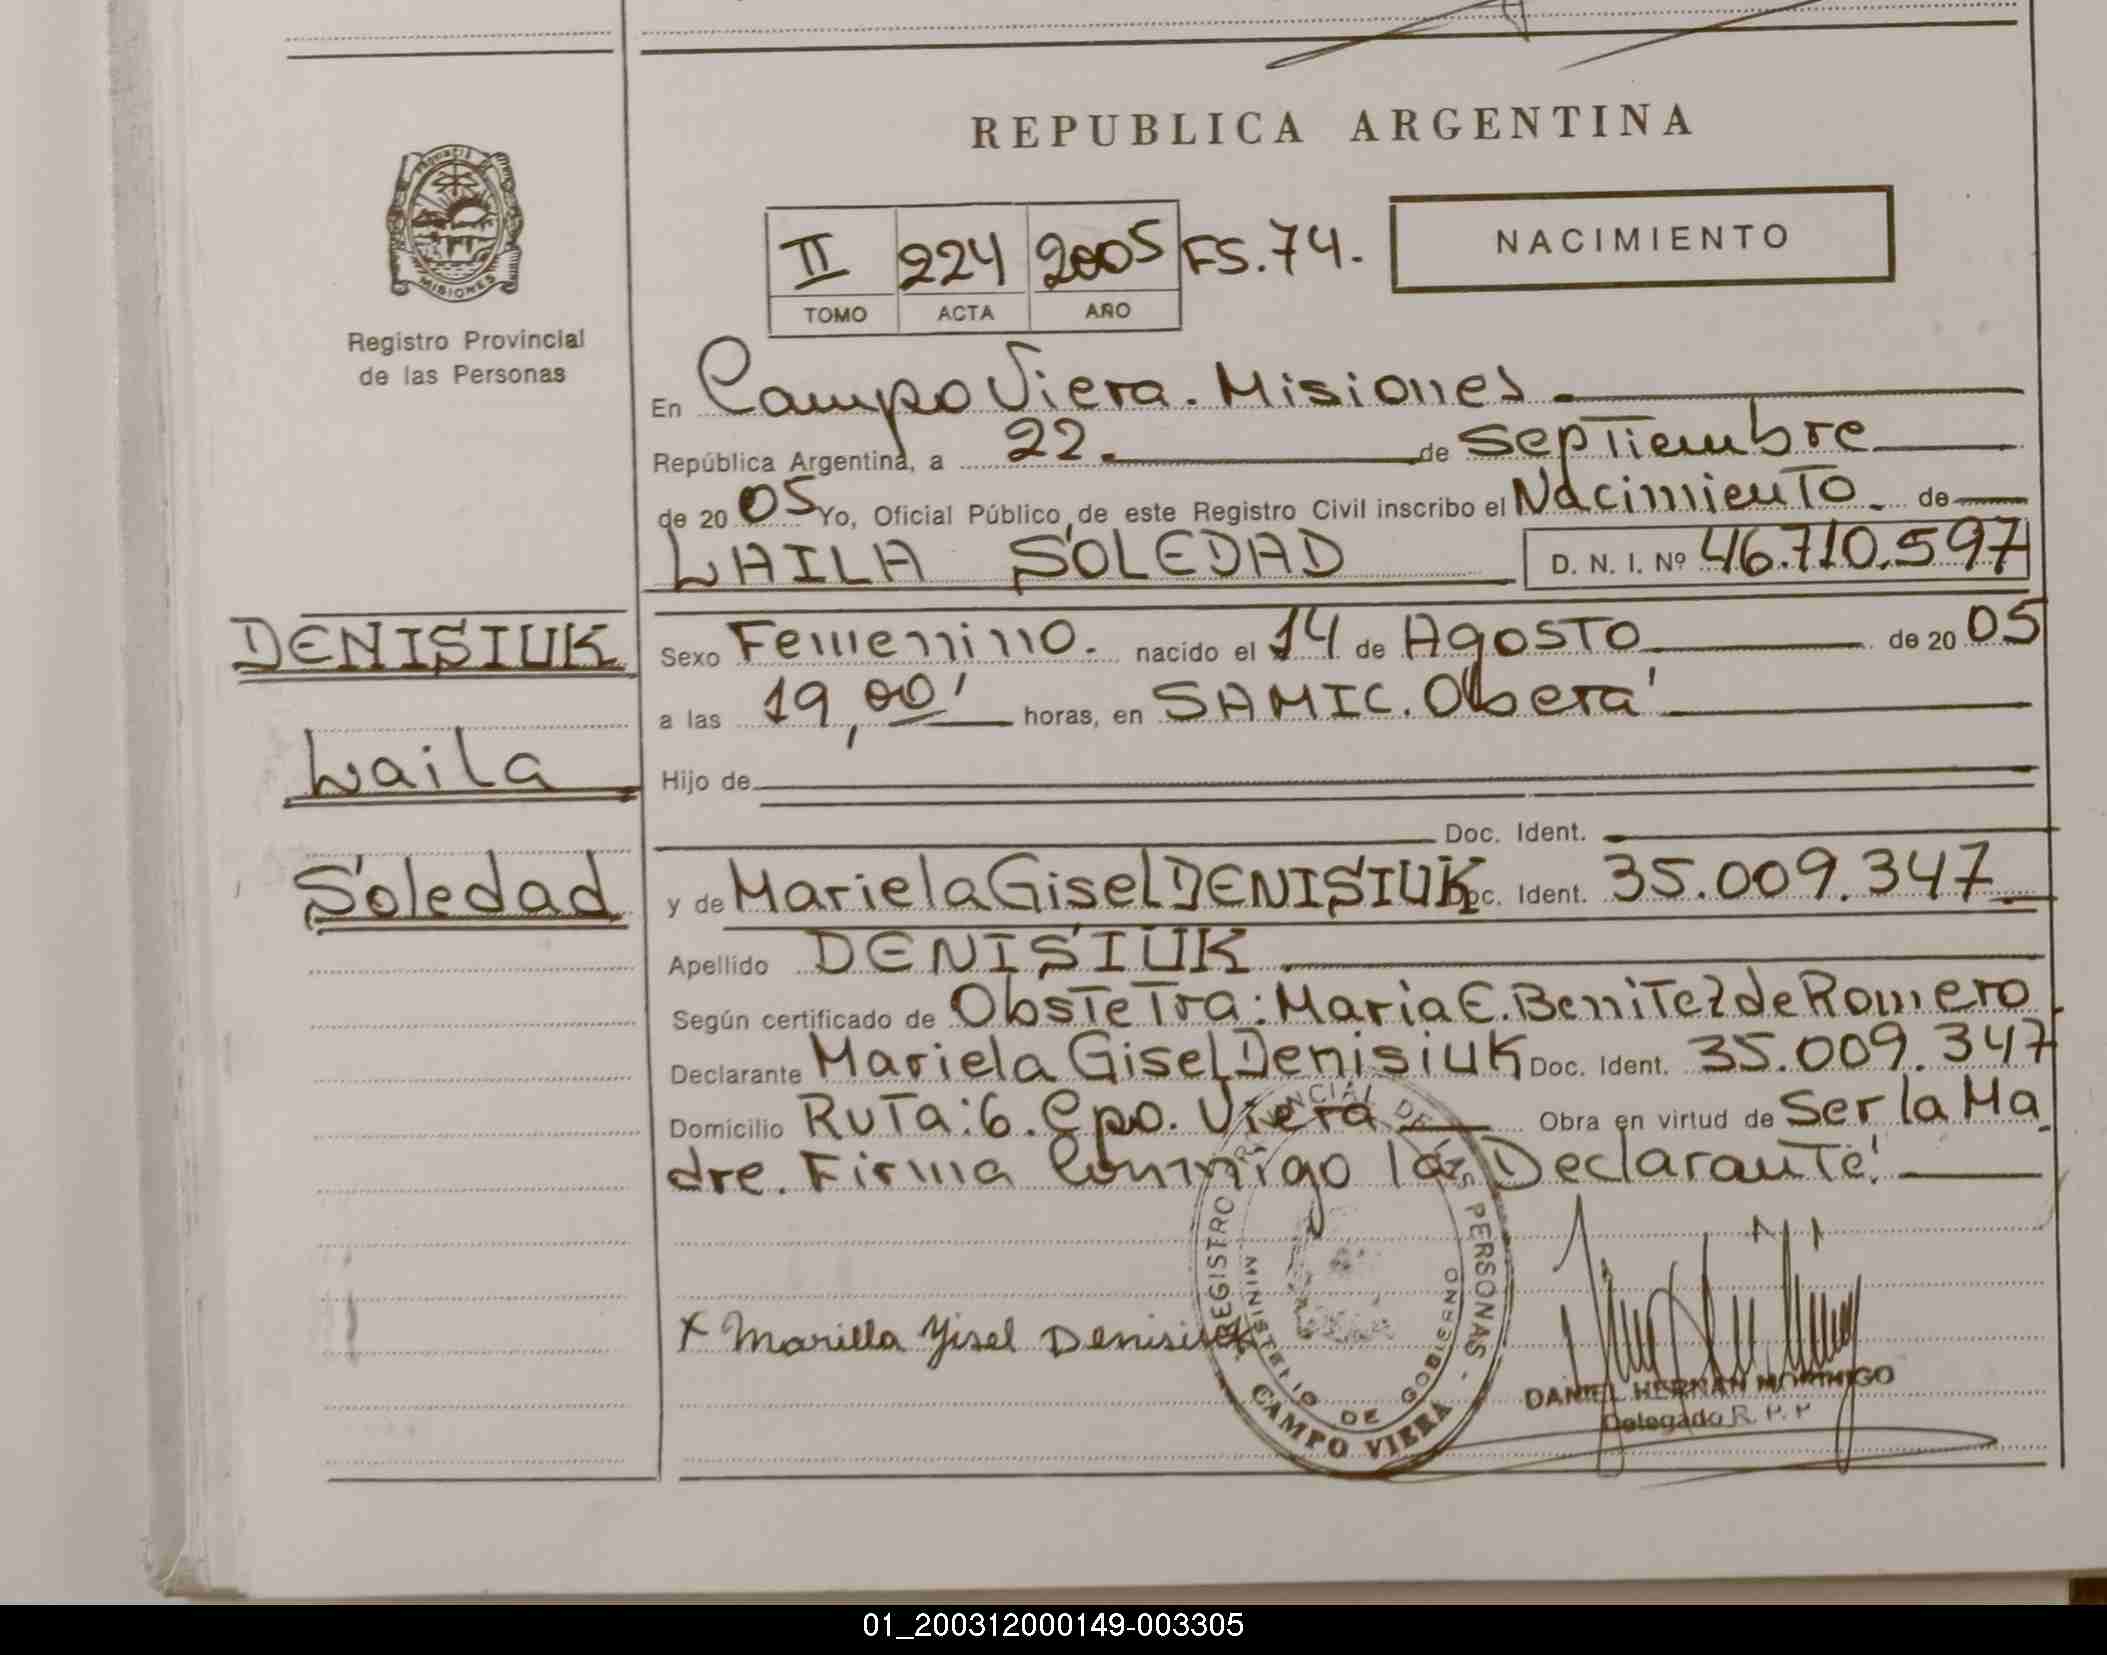 REPUBLICA ARGENTINA
PROVINCIA DE MISIONES
Registro Provincial
de las Personas
II 224 2005 FS.74.
TOMO ACTA AÑO
NACIMIENTO
En Campo Viera. Misiones
República Argentina, a 22. de Septiembre
de 2005 Yo, Oficial Público de este Registro Civil inscribo el Nacimiento de
LAILA SOLEDAD D. N. I. Nº 46.710.597
DENISIUK
Laila
Soledad
Sexo Femenino. nacido el 14 de Agosto de 2005
a las 19,00' horas, en SAMIC. Oberá
Hijo de
Doc. Ident.
y de Mariela Gisel DENISIUK Doc. Ident. 35.009.347
Apellido DENISIUK
Según certificado de Obstetra: Maria E. Benitez de Romero
Declarante Mariela Gisel Denisiuk Doc. Ident. 35.009.347
Domicilio Ruta: 6. Cpo. Viera Obra en virtud de Ser la Ma
dre. Firma Conmigo la Declarante
x Mariella Yisel Denisiuk
REGISTRO PROVINCIAL DE LAS PERSONAS -
MINISTERIO DE GOBIERNO
CAMPO VIERA
DANIEL HERNAN MORINIGO
Delegado R. P. P
01_200312000149-003305